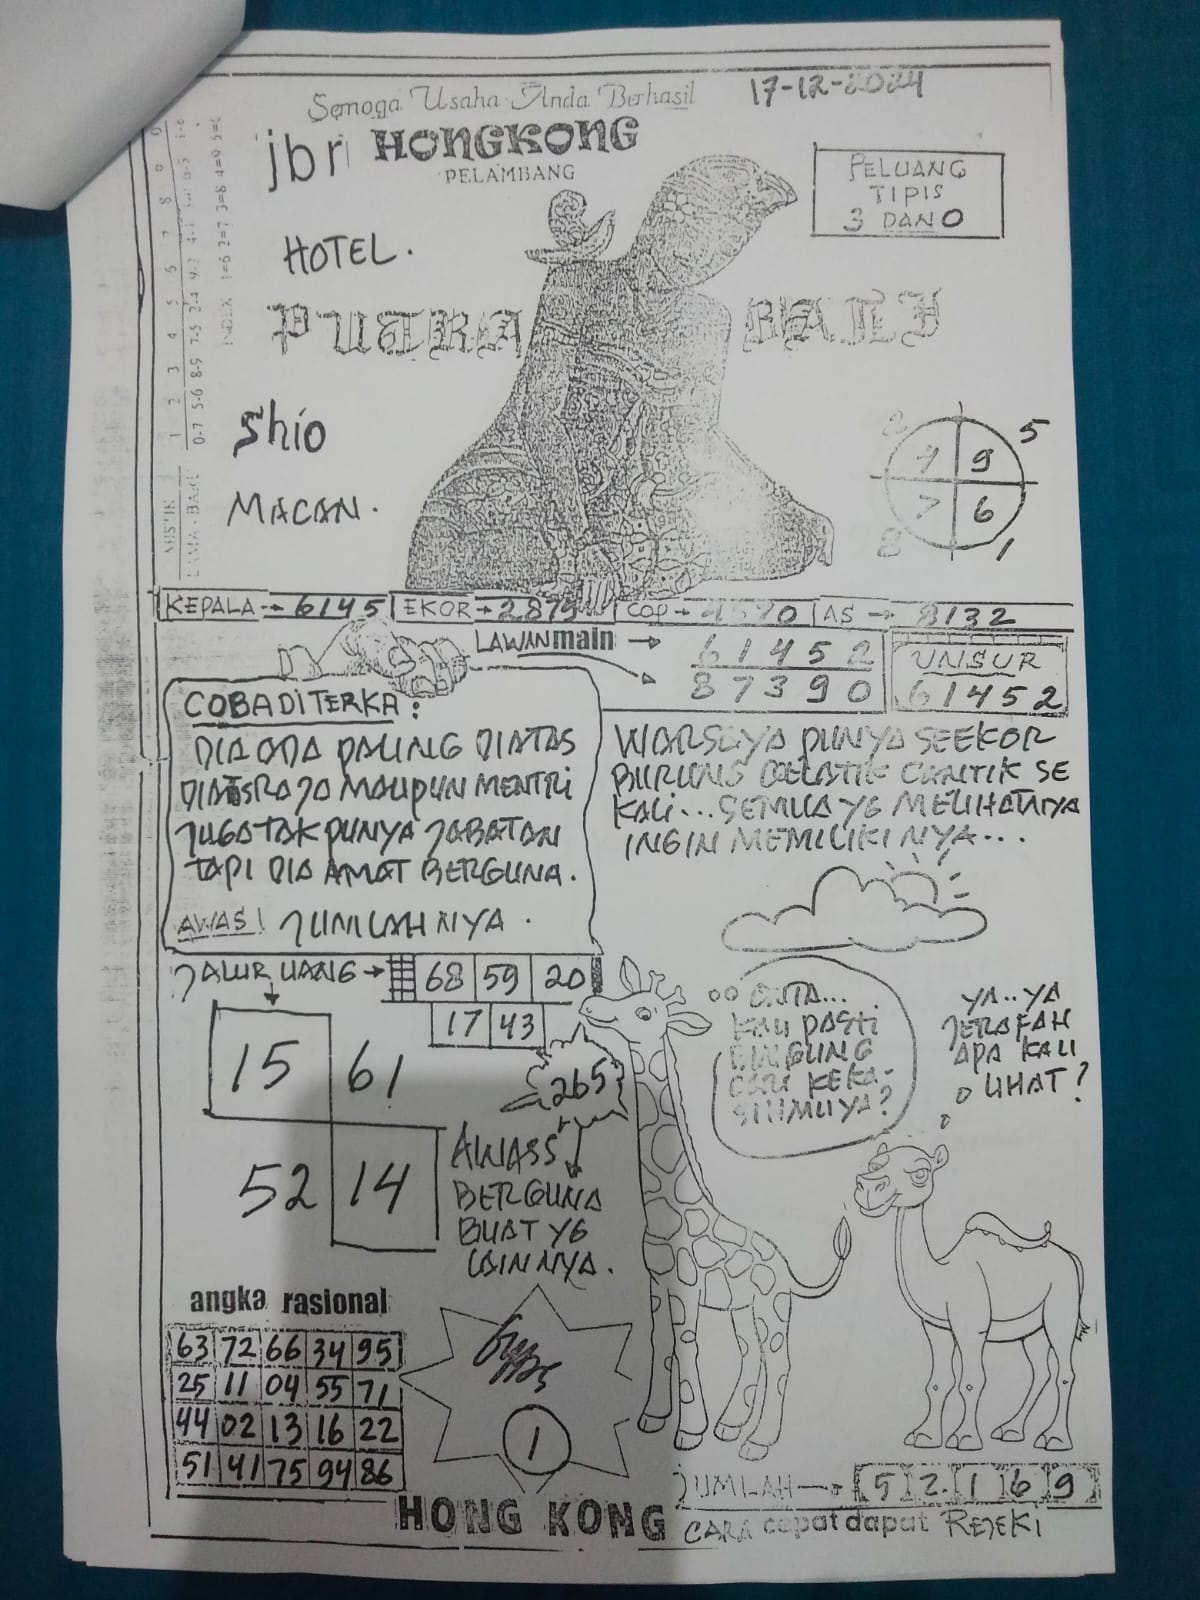 Semoga Usaha Anda Berhasil
17-12-2024
jbr HONGKONG
PELAMBANG
PELUANG
TIPIS
3 DAN 0
HOTEL.
PUTRA
Shio
MACAN.
5
9
6
1
KEPALA → 6145
EKOR → 2879
COP →
AS → 8132
LAWAN main →
61452
87390
UNSUR
61452
COBA DITERKA :
DIA ADA PALING DIATAS
DIATAS RAJA MAUPUN MENTRI
JUGA TAK PUNYA JABATAN
TAPI DIA AMAT BERGUNA.
AWAS! JUMLAHNYA.
WARSAYA PUNYA SEEKOR
BURUNG CANTIK SE
KALI... SEMUA YG MELIHATNYA
INGIN MEMILIKINYA...
JALUR UANG → 68 59 20
17 43
15 61
52 14
265
AWASS
BERGUNA
BUAT YG
LAINNYA.
UNTA...
KAU PASTI
BINGUNG
CARI KEKA-
SIHMU YA?
YA..YA
JERAFAH
APA KAU
LIHAT?
angka rasional
63 72 66 34 95
25 11 04 55 71
44 02 13 16 22
51 41 75 94 86
1
JUMLAH → 5 2 1 6 9
HONG KONG
CARA cepat dapat REJEKI